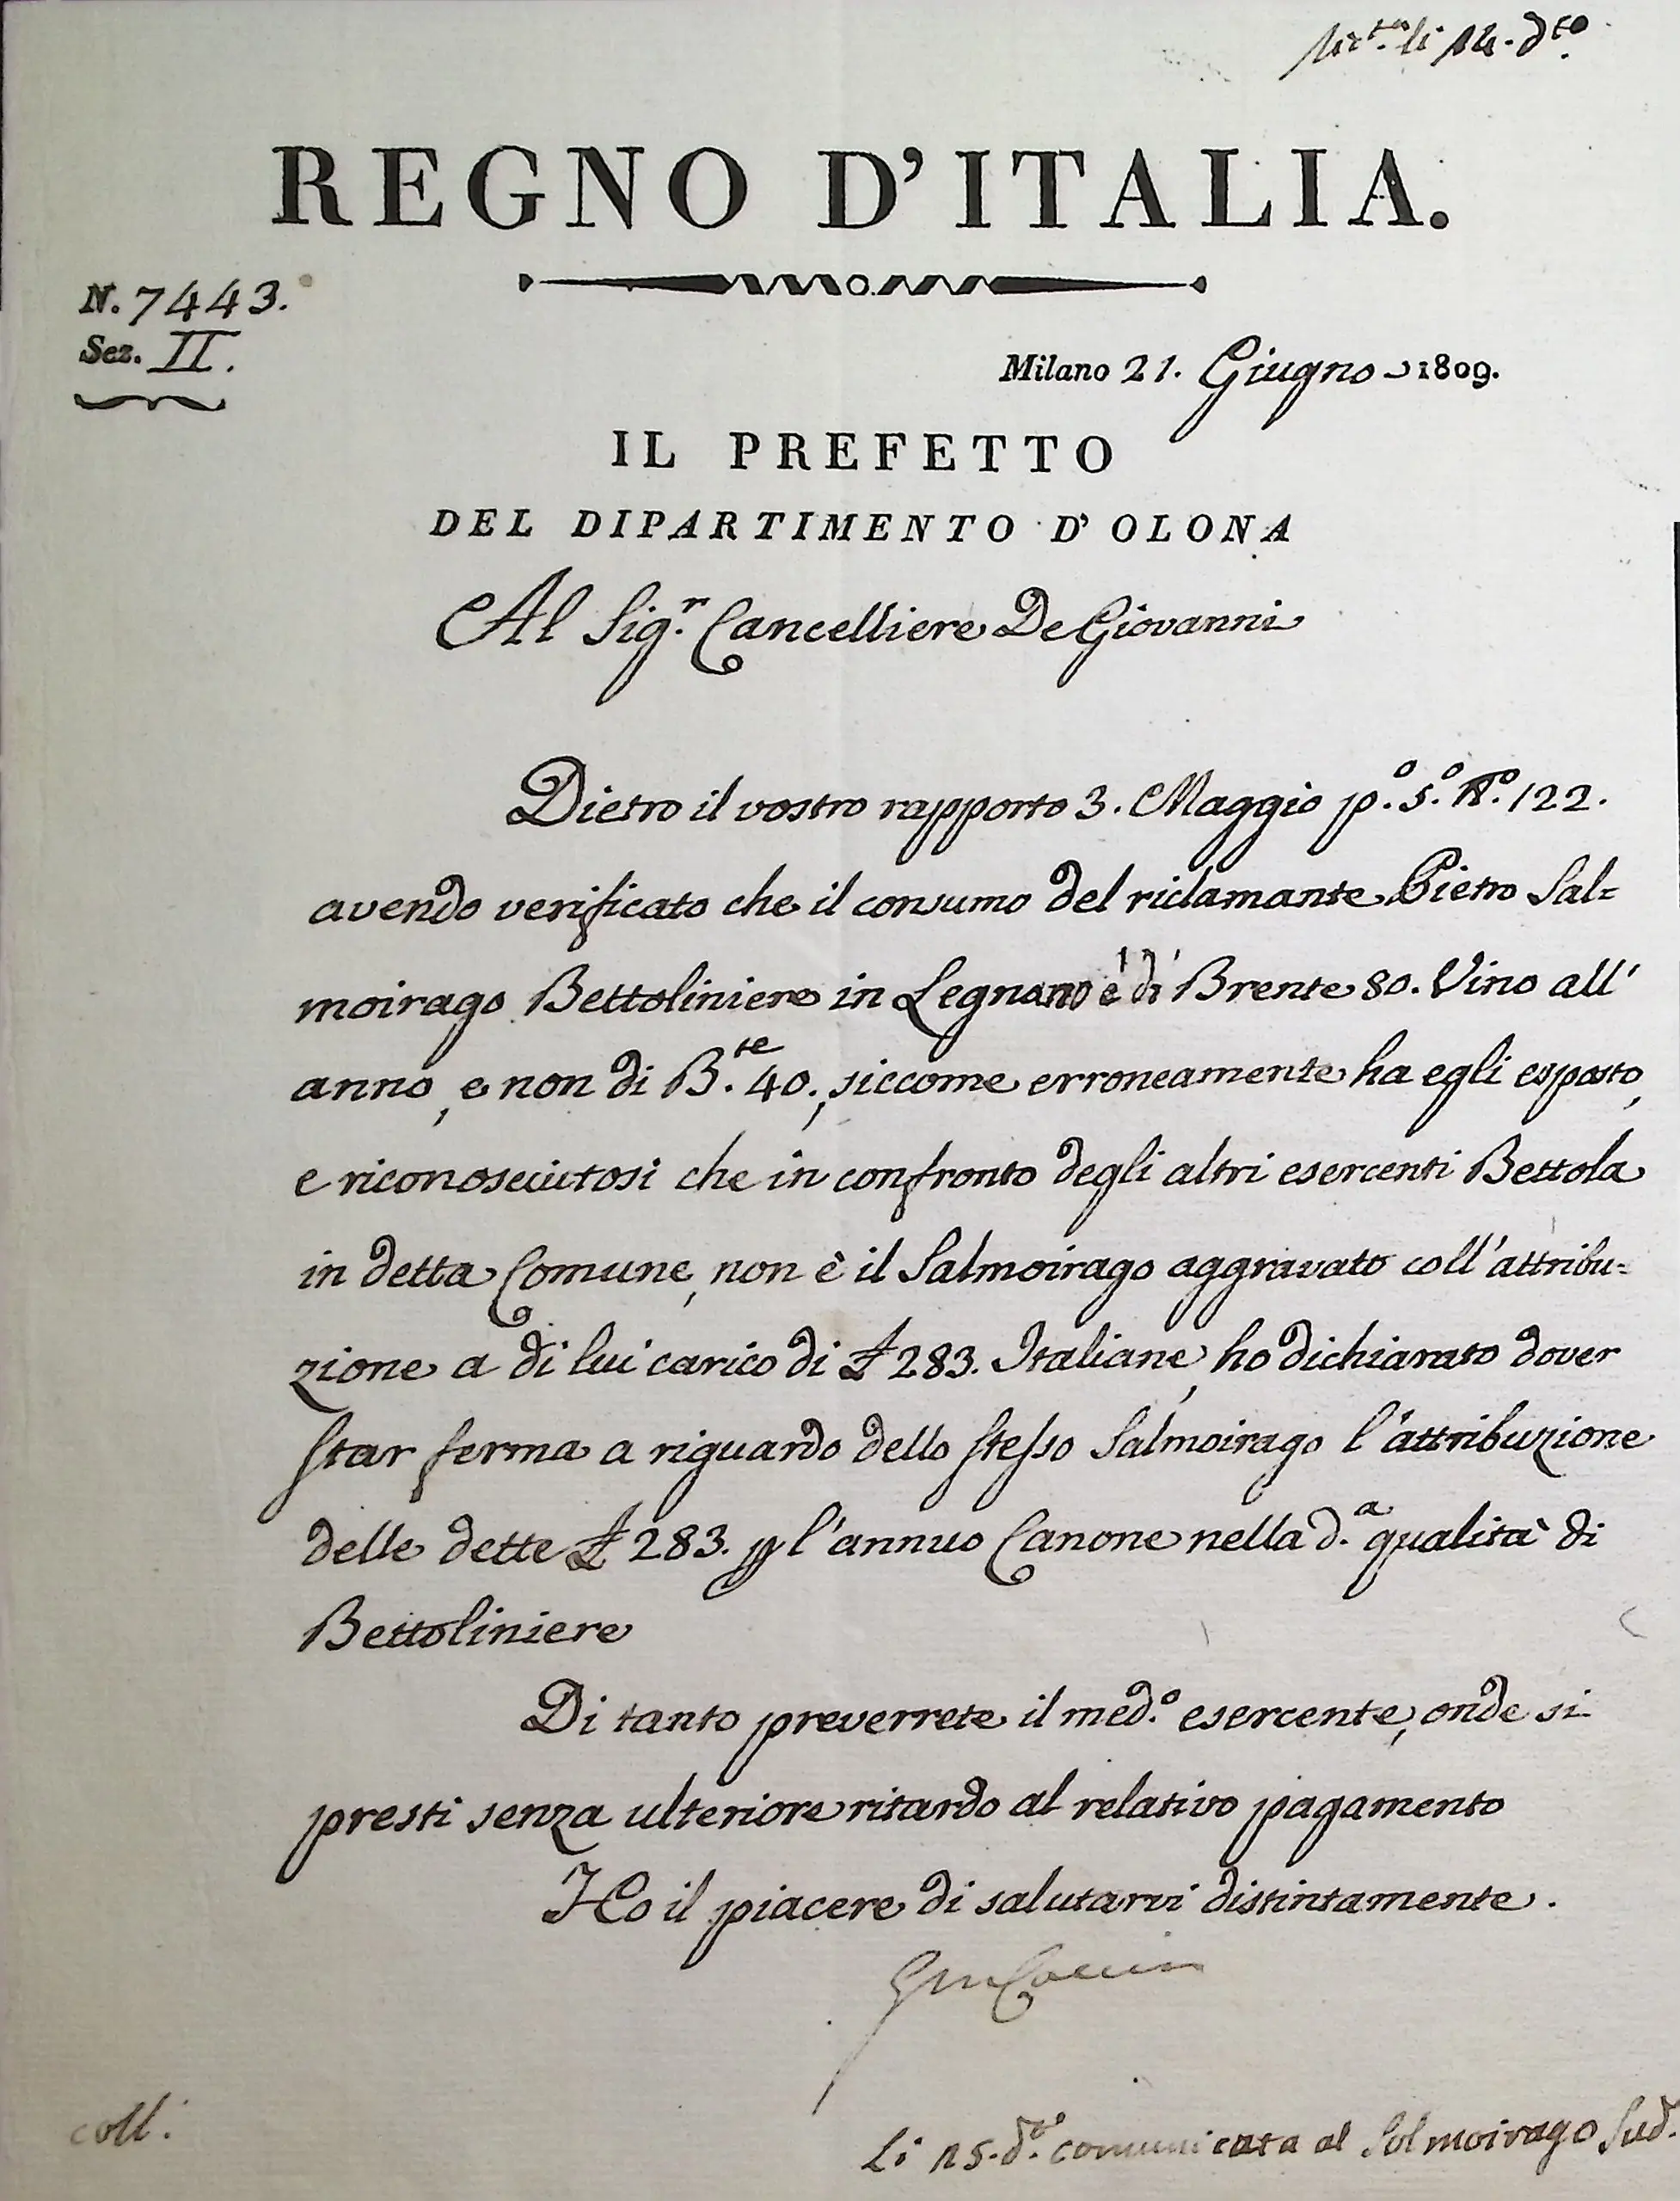 li 24. d.to
REGNO D'ITALIA.
N. 7443.
Sez. II.
Milano 21. Giugno 1809.
IL PREFETTO
DEL DIPARTIMENTO D'OLONA
Al Sig.r Cancelliere De Giovanni
Dietro il vostro rapporto 3. Maggio p.o s.o N.o 122.
avendo verificato che il consumo del riclamante Pietro Sal=
moirago Bettoliniere in Legnano è di Brente 80. Vino all'
anno, e non di B.te 40., siccome erroneamente ha egli esposto,
e riconosciutosi che in confronto degli altri esercenti Bettola
in detta Comune, non è il Salmoirago aggravato coll'attribu=
zione a di lui carico di £ 283. Italiane, ho dichiarato dover
star ferma a riguardo dello stesso Salmoirago l'attribuzione
delle dette £ 283. p l'annuo Canone nella d.a qualità di
Bettoliniere
Di tanto preverrete il med.o esercente, onde si
presti senza ulteriore ritardo al relativo pagamento
Ho il piacere di salutarvi distintamente.
coll:
Li 25. d.to comunicata al Salmoirago sud.